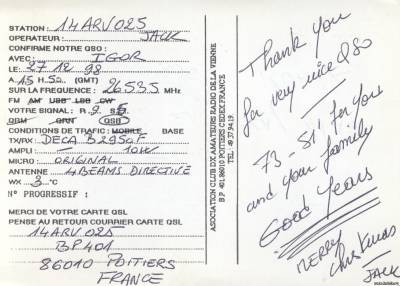 STATION : 14 ARV 025
OPERATEUR : JACK
CONFIRME NOTRE QSO :
AVEC : IGOR
LE : 27 12 98
A 15 H 50 (GMT)
SUR LA FREQUENCE : 26535 MHz
FM AM USB LSB CW
VOTRE SIGNAL : R. 5 S
QRM QRN QSB
CONDITIONS DE TRAFIC : MOBILE BASE
TX/RX : DECA B2950F
AMPLI : 10W
MICRO : ORIGINAL
ANTENNE : 4 BEAMS DIRECTIVE
WX : 3 °C
N° PROGRESSIF :
MERCI DE VOTRE CARTE QSL
PENSE AU RETOUR COURRIER CARTE QSL
14 ARV 025
BP 401
86010 POITIERS
FRANCE
ASOCIATION CLUB DX AMATEURS RADIO DE LA VIENNE
B.P. 401, 86010 POITIERS CEDEX FRANCE
TEL : 49.37.94.19.
Thank you
for very nice QSO
73 - 51' for you
and your family
Good Years
MERRY
Christmas
JACK